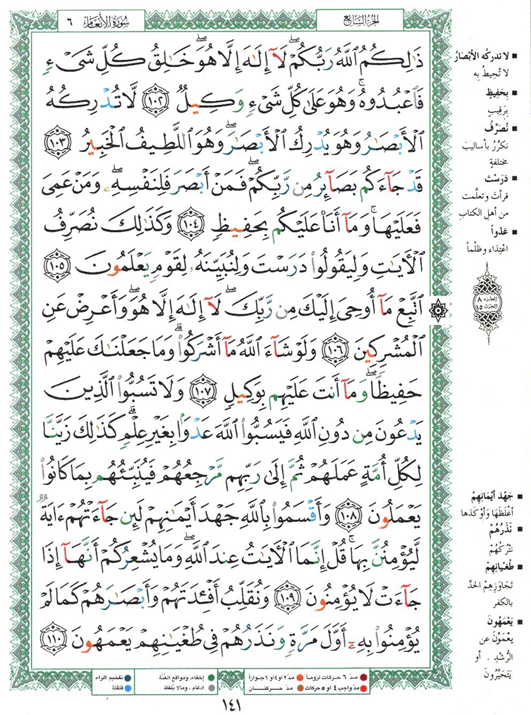 الجزء السابع
سورة الأنعام
٦
ذَٰلِكُمُ ٱللَّهُ رَبُّكُمْ ۖ لَآ إِلَٰهَ إِلَّا هُوَ ۖ خَٰلِقُ كُلِّ شَىْءٍ
فَٱعْبُدُوهُ ۚ وَهُوَ عَلَىٰ كُلِّ شَىْءٍ وَكِيلٌ ١٠٢ لَّا تُدْرِكُهُ
ٱلْأَبْصَٰرُ وَهُوَ يُدْرِكُ ٱلْأَبْصَٰرَ ۖ وَهُوَ ٱللَّطِيفُ ٱلْخَبِيرُ ١٠٣
قَدْ جَآءَكُم بَصَآئِرُ مِن رَّبِّكُمْ ۖ فَمَنْ أَبْصَرَ فَلِنَفْسِهِۦ ۖ وَمَنْ عَمِىَ
فَعَلَيْهَا ۚ وَمَآ أَنَا۠ عَلَيْكُم بِحَفِيظٍ ١٠٤ وَكَذَٰلِكَ نُصَرِّفُ
ٱلْءَايَٰتِ وَلِيَقُولُوا۟ دَرَسْتَ وَلِنُبَيِّنَهُۥ لِقَوْمٍ يَعْلَمُونَ ١٠٥
ٱتَّبِعْ مَآ أُوحِىَ إِلَيْكَ مِن رَّبِّكَ ۖ لَآ إِلَٰهَ إِلَّا هُوَ ۖ وَأَعْرِضْ عَنِ
ٱلْمُشْرِكِينَ ١٠٦ وَلَوْ شَآءَ ٱللَّهُ مَآ أَشْرَكُوا۟ ۗ وَمَا جَعَلْنَٰكَ عَلَيْهِمْ
حَفِيظًا ۖ وَمَآ أَنتَ عَلَيْهِم بِوَكِيلٍ ١٠٧ وَلَا تَسُبُّوا۟ ٱلَّذِينَ
يَدْعُونَ مِن دُونِ ٱللَّهِ فَيَسُبُّوا۟ ٱللَّهَ عَدْوًۢا بِغَيْرِ عِلْمٍ ۗ كَذَٰلِكَ زَيَّنَّا
لِكُلِّ أُمَّةٍ عَمَلَهُمْ ثُمَّ إِلَىٰ رَبِّهِم مَّرْجِعُهُمْ فَيُنَبِّئُهُم بِمَا كَانُوا۟
يَعْمَلُونَ ١٠٨ وَأَقْسَمُوا۟ بِٱللَّهِ جَهْدَ أَيْمَٰنِهِمْ لَئِن جَآءَتْهُمْ ءَايَةٌ
لَّيُؤْمِنُنَّ بِهَا ۚ قُلْ إِنَّمَا ٱلْءَايَٰتُ عِندَ ٱللَّهِ ۖ وَمَا يُشْعِرُكُمْ أَنَّهَآ إِذَا
جَآءَتْ لَا يُؤْمِنُونَ ١٠٩ وَنُقَلِّبُ أَفْـِٔدَتَهُمْ وَأَبْصَٰرَهُمْ كَمَا لَمْ
يُؤْمِنُوا۟ بِهِۦٓ أَوَّلَ مَرَّةٍ وَنَذَرُهُمْ فِى طُغْيَٰنِهِمْ يَعْمَهُونَ ١١٠
لا تدركه الأبصار
لا تُحيطُ به
بحفيظ
برقيبٍ
نُصَرِّفُ
نكرّرُ بأساليبَ
مختلفةٍ
دَرَسْتَ
قرأتَ وتعلّمتَ
من أهل الكتابِ
عَدْواً
اعتداءً وظلماً
جَهْدَ أيمانِهِمْ
أغلَظَها وأوكَدَها
نَذَرُهُمْ
نتركُهُمْ
طُغيانِهِمْ
تجاوُزِهِمُ الحدَّ
بالكفرِ
يَعْمَهُونَ
يَعْمَوْنَ عن
الرُّشْدِ . أو
يتحيّرُونَ
مدّ ٦ حركات لزوماً
مدّ ٢ أو ٤ أو ٦ جوازاً
إخفاء، ومواقع الغُنّة
تفخيم الراء
مدّ واجب ٤ أو ٥ حركات
مدّ حركتان
ادغام ، ومالا يلفظ
قلقلة
١٤١